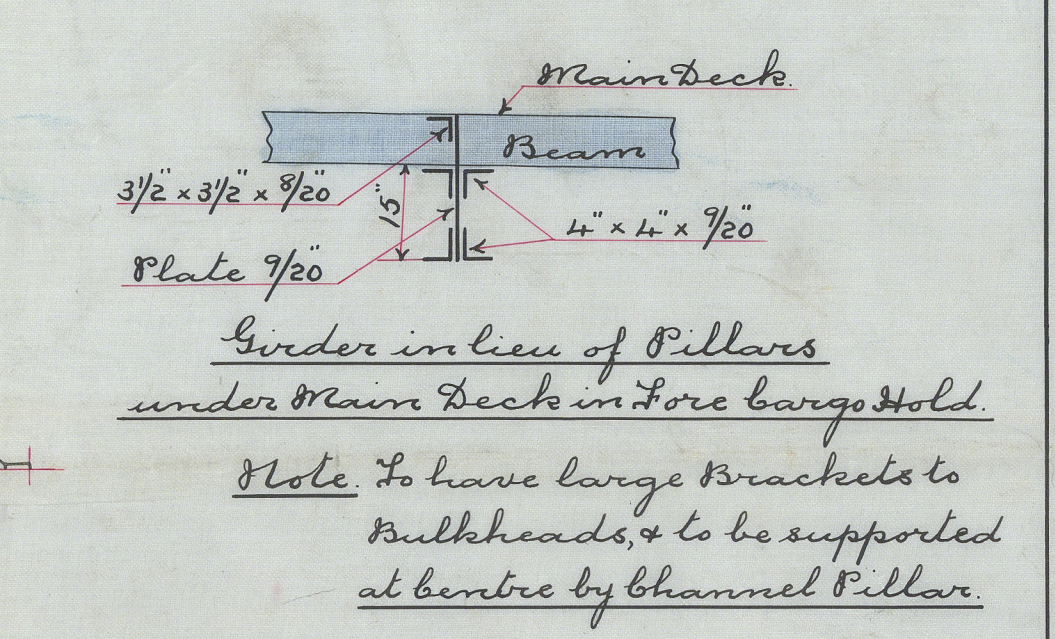 Main Deck.
Beam
3 1/2" x 3 1/2" x 8/20"
15"
4" x 4" x 9/20"
Plate 9/20"
Girder in lieu of Pillars
under Main Deck in Fore Cargo Hold.
Note. To have large Brackets to
Bulkheads, & to be supported
at Centre by Channel Pillar.